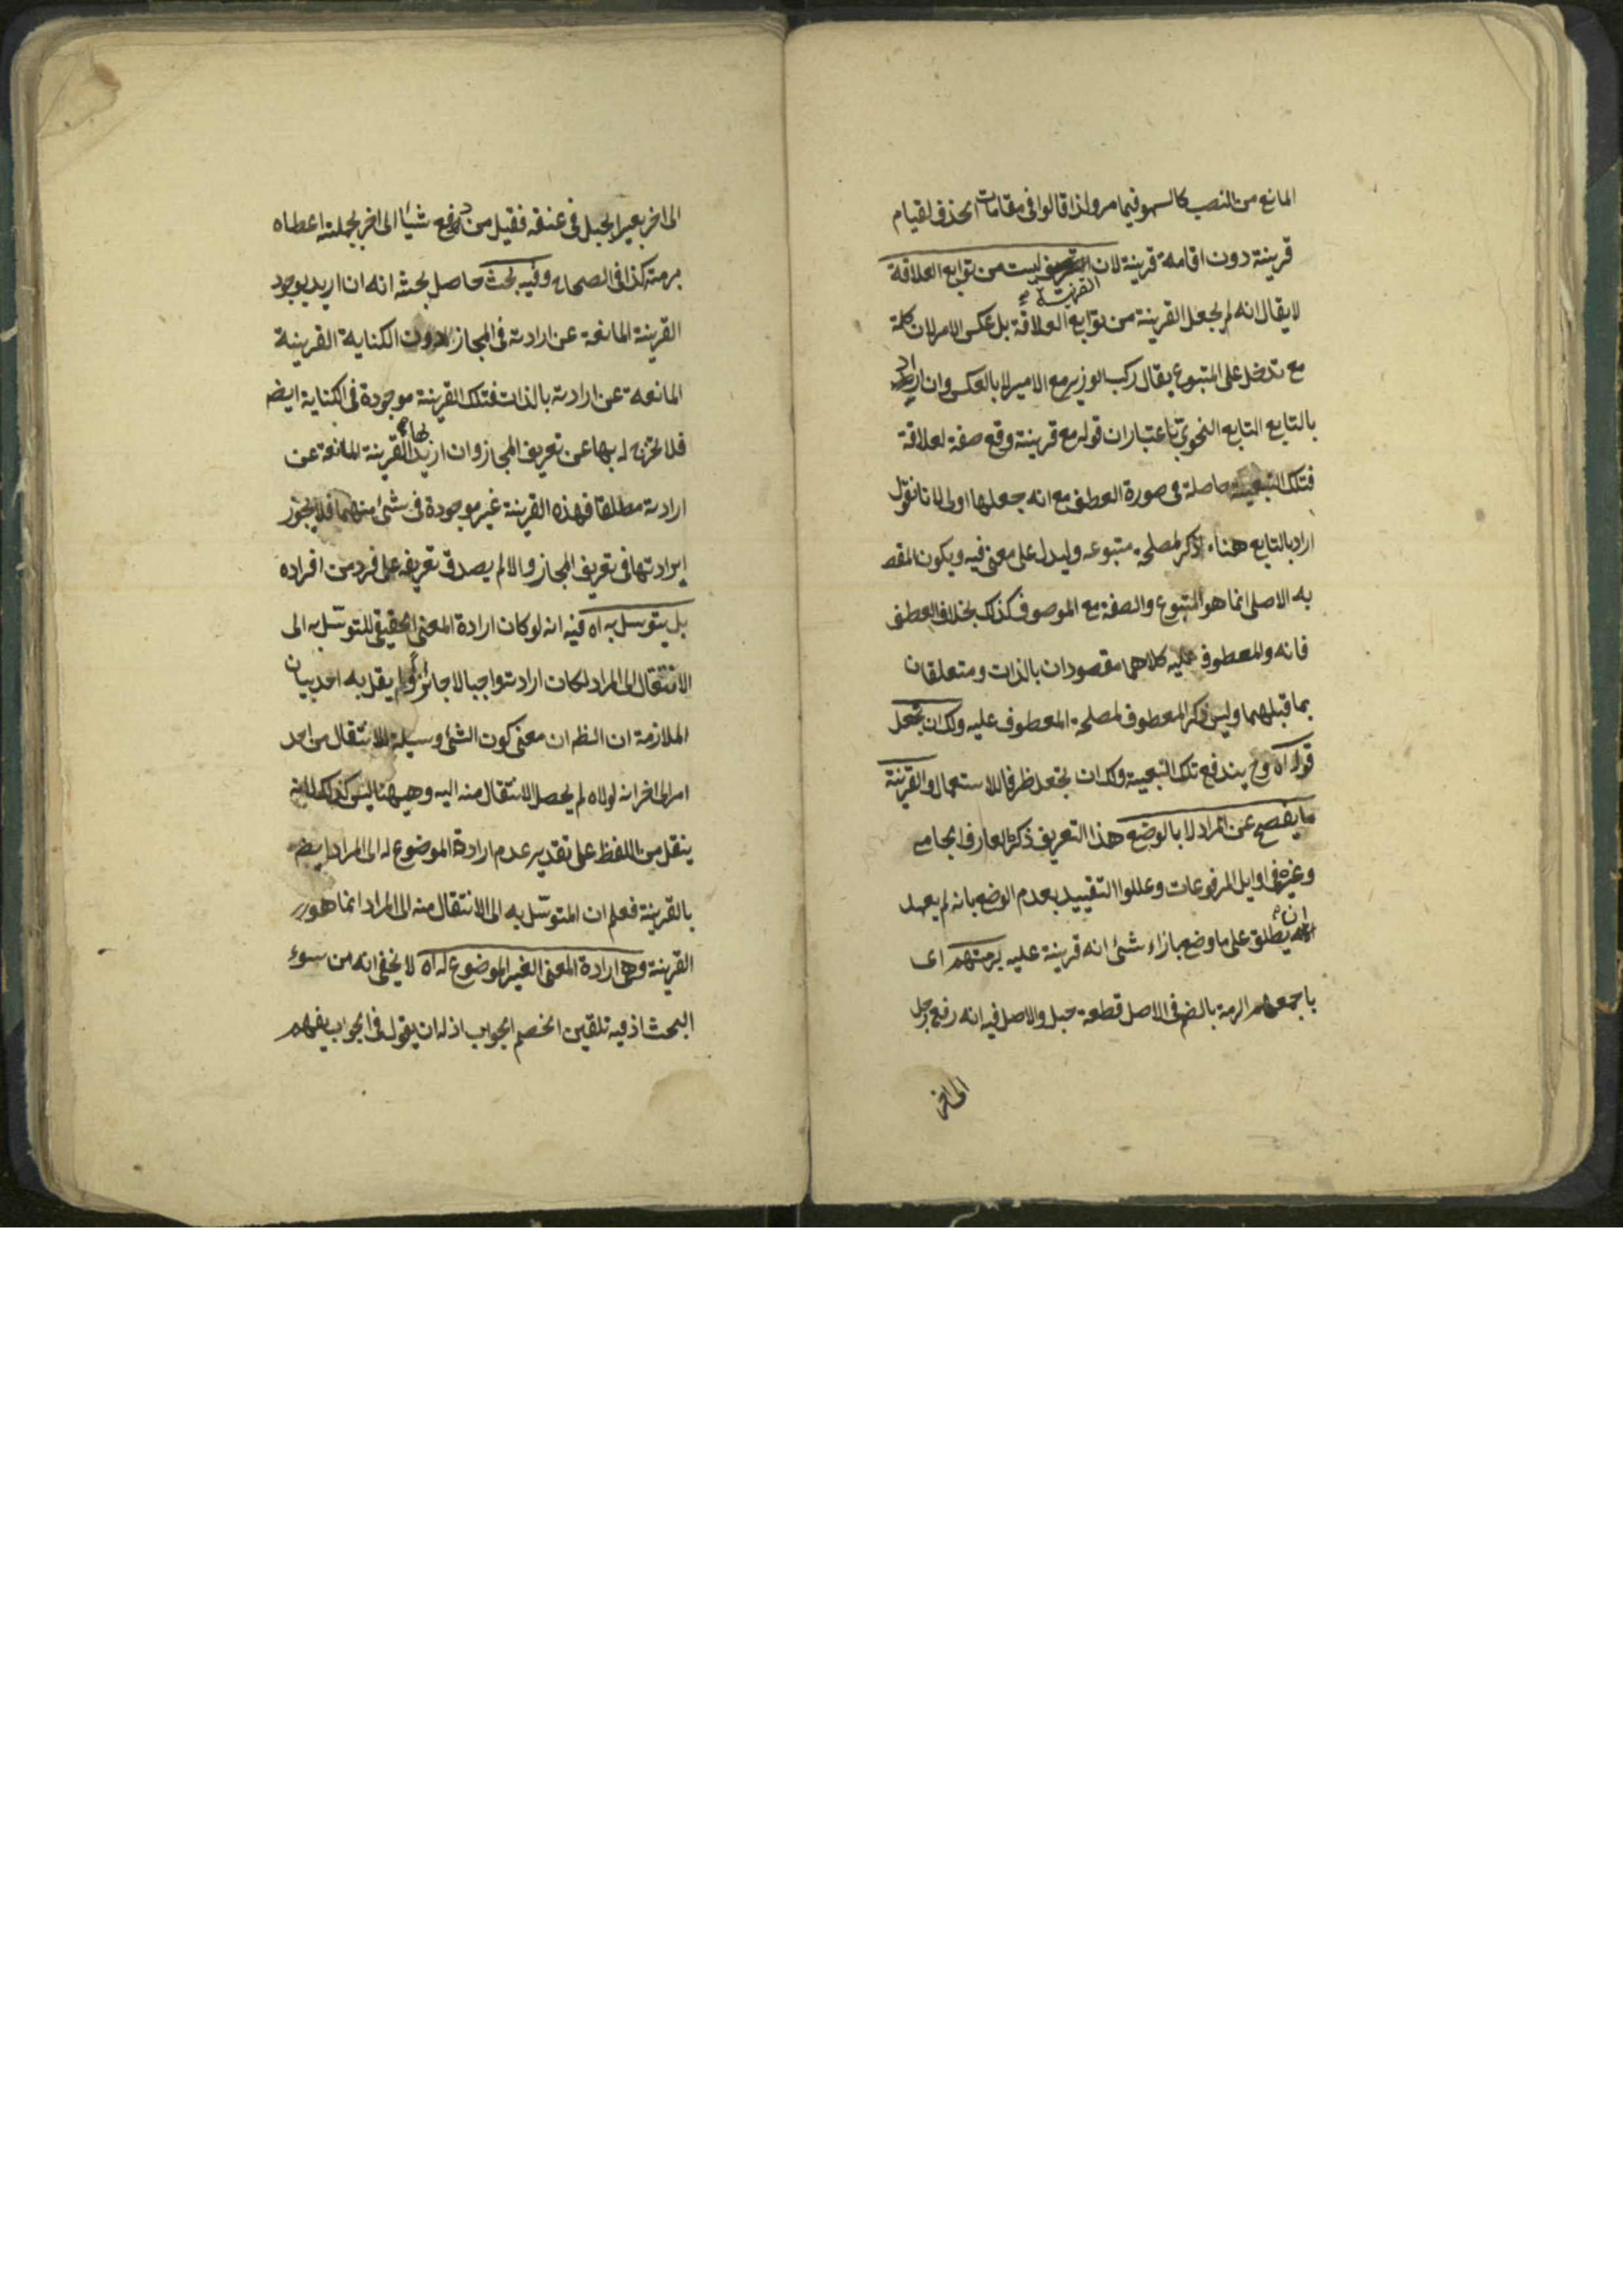 المانع من النصب كالسهو فيما مر ولذا قالوا فى مقامات الحذف لقيام
قرينة دون اقامة قرينة لان القرينة ليست من توابع العلاقة
لا يقال انه لم يجعل القرينة من توابع العلاقة بل عكس الامر لان كلمة
مع تدخل على المتبوع يقال ركب الوزير مع الامير لا بالعكس وان اراد
بالتابع التابع النحوى باعتبار ان قوله مع قرينة وقع صفة لعلاقة
فتلك التبعية حاصلة فى صورة العطف مع انه جعلها اولى لانا نقول
اراد بالتابع هنا ما ذكر لمصلحة متبوعه وليدل على معنى فيه ويكون المقص
به الاصلى انما هو المتبوع والصفة مع الموصوف كذلك بخلاف العطف
فانه والمعطوف عليه كلاهما مقصودان بالذات ومتعلقان
بما قبلهما وليس ذكر المعطوف لمصلحة المعطوف عليه ولك ان تجعل
قوله اه وح يندفع تلك التبعية ولك ان تجعل ظرفا للاستعمال والقرينة
ما يفصح عن المراد لا بالوضع هذا التعريف ذكر العارف الجامى
وغيره فى اوايل المرفوعات وعللوا التقييد بعدم الوضع بانه لم يعهد
ان يطلق على ما وضع بازاء شئ انه قرينة عليه برمتهم اى
باجمعهم الرمة بالضم فى الاصل قطعة حبل والاصل فيه انه رفع رجل
الى اخر
الى اخر بعيرا بحبل فى عنقه فقيل من دفع شيئا الى اخر بجملته اعطاه
برمته كذا فى الصحاح وفيه بحث حاصل بحثه انه ان اريد بوجود
القرينة المانعة عن ارادته فى المجاز دون الكناية القرينة
المانعة عن ارادته بالذات فتلك القرينة موجودة فى الكناية ايضا
فلا تخرج له بها عن تعريف المجاز وان اريد بها القرينة المانعة عن
ارادته مطلقا فهذه القرينة غير موجودة فى شئ منهما فلا يجوز
ايرادتها فى تعريف المجاز والا لم يصدق تعريفه على فرد من افراده
بل يتوسل به اه فيه انه لو كان ارادة المعنى الحقيقى للتوسل به الى
الانتقال الى المراد لكان ارادته واجبا لا جائزا ولم يقل به احد بيان
الملازمة ان الظه ان معنى كون الشئ وسيلة للانتقال من احد
امر الى اخر انه لولاه لم يحصل الانتقال منه اليه وهيهنا ليس كذلك لانه
ينتقل من اللفظ على تقدير عدم ارادة الموضوع له الى المراد ايضا
بالقرينة فعلم ان المتوسل به الى الانتقال منه الى المراد انما هو
القرينة وهى ارادة المعنى الغير الموضوع له اه لا يخفى انه من سوء
البحث اذ فيه تلقين الخصم الجواب اذ له ان يقول فى الجواب يفهم